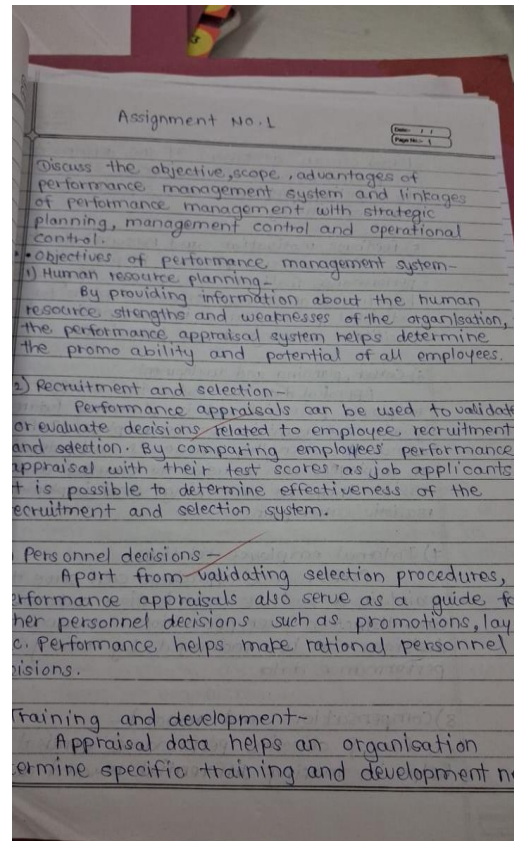 Assignment No. 1
Date: / /
Page No.: 1
Discuss the objective, scope, advantages of
performance management system and linkages
of performance management with strategic
planning, management control and operational
control.
• Objectives of performance management system-
1) Human resource planning-
By providing information about the human
resource strengths and weaknesses of the organisation,
the performance appraisal system helps determine
the promo ability and potential of all employees.
2) Recruitment and selection-
Performance appraisals can be used to validate
or evaluate decisions related to employee, recruitment
and selection. By comparing employees' performance
appraisal with their test scores as job applicants
t is possible to determine effectiveness of the
ecruitment and selection system.
) Personnel decisions-
Apart from validating selection procedures,
erformance appraisals also serve as a guide fo
her personnel decisions such as promotions, lay
c. Performance helps make rational personnel
isions.
Training and development-
Appraisal data helps an organisation
ermine specific training and development n